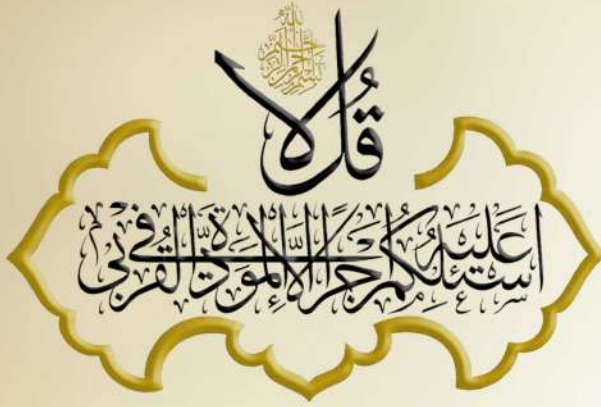 بسم الله الرحمن الرحيم
قُل لا
اسئلكم عليه اجرًا الّا المودة في القربى